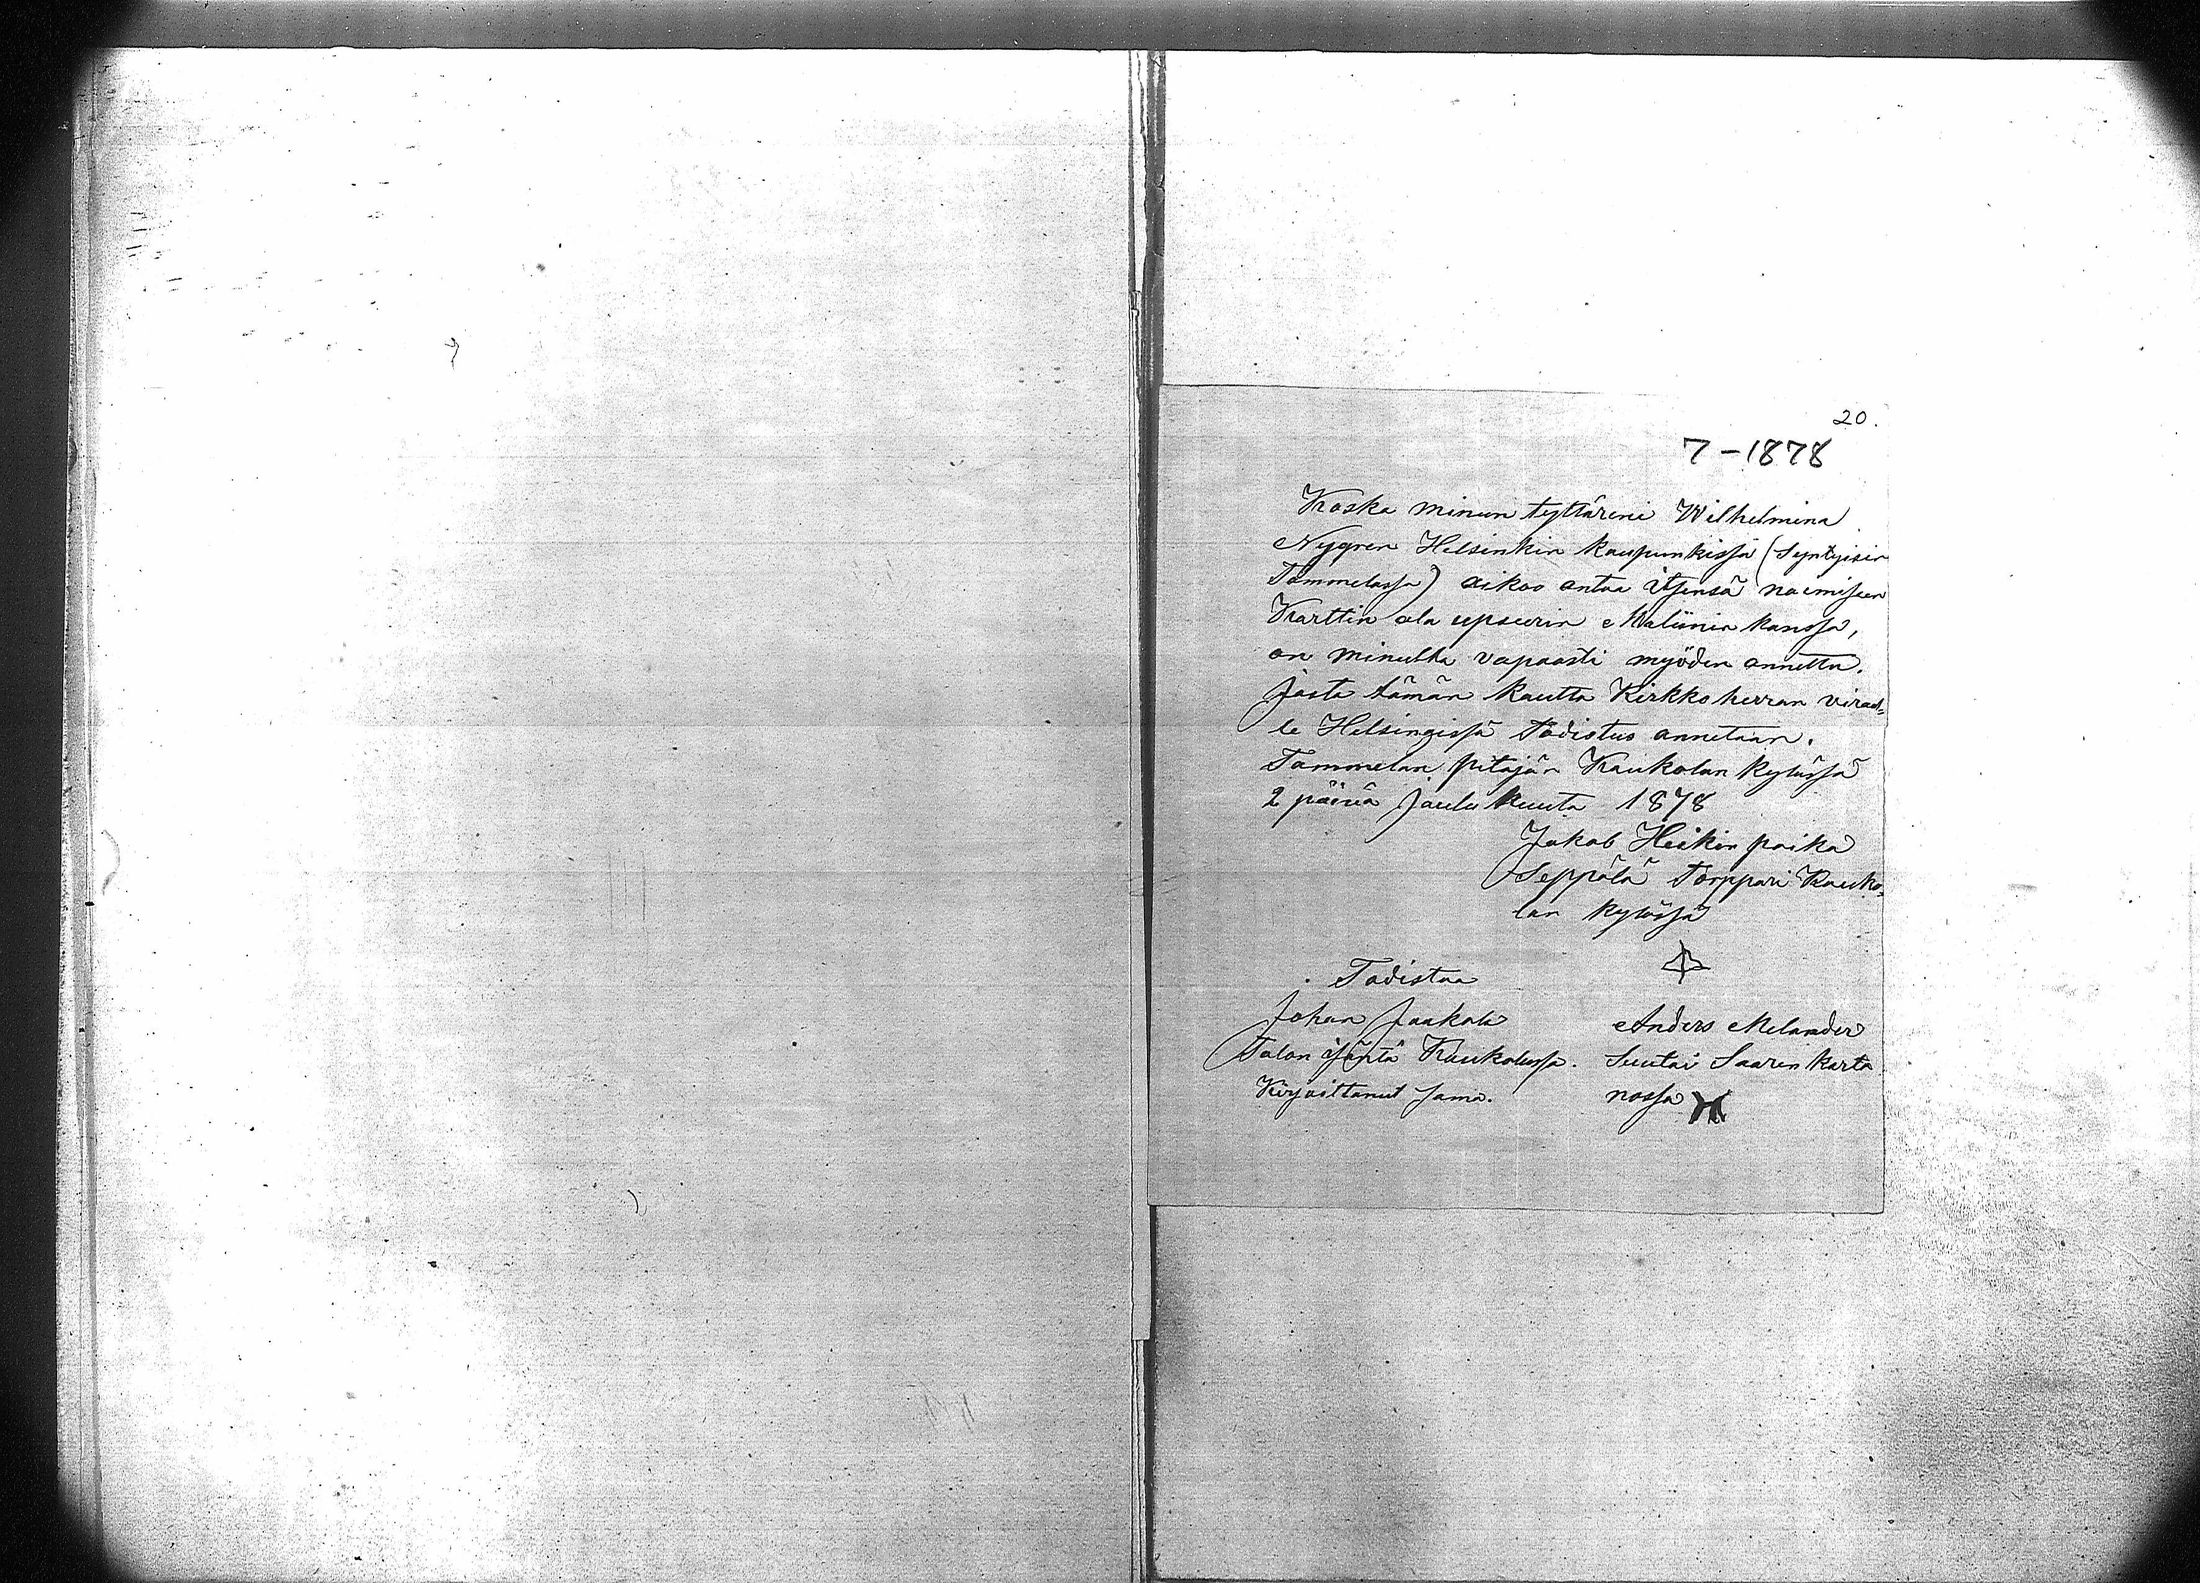 20.
7-1878
Koska minun tyttäreni Wilhelmina
Nygren Helsinkin kaupunkissa (Syntyisin
Tammelassa) aikoo antaa itsensä naimiseen
Karttin ala upseerin Maliinin kanssa,
on minulta vapaasti myöden annettu.
josta tämän kautta Kirkkoherran viraal=
le Helsingissä Todistus annetaan.
Tammelan pitäjän Kaukolan kylässä
2 päivä Joulu kuuta 1878
Jakob Heikin poika
Seppälä Torppari Kauko=
lan kylässä
Todistaa
Johan Jaakola Anders Melander
Talon isäntä Kaukolassa. Suutai Saaren karta
Kirjoittanut sama. nossa